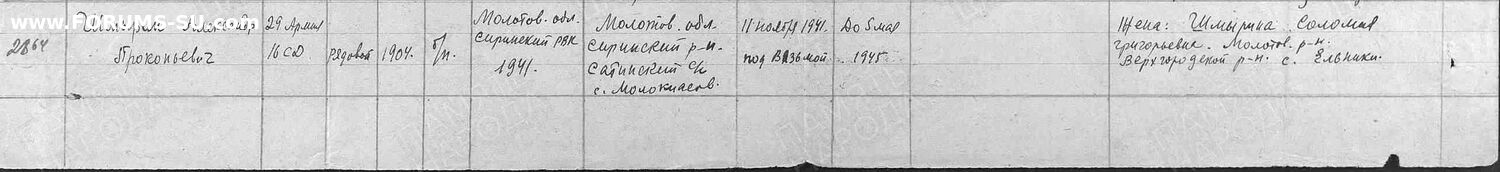 www.FORUMS-SU.com
2864
Прокопьевич
29 Армия
16 СД
рядовой
1904г
б/п.
Молотов. обл.
РВК
1941.
Молотов. обл
р-н.
Сатинский с/с
с.
11 ноября 1941.
под Вязьмой
До 5 мая
1945.
Жена: Шмырина Соломия
Григорьевна. Молотов. р-н.
Верхгородской р-н. с. Ельники.